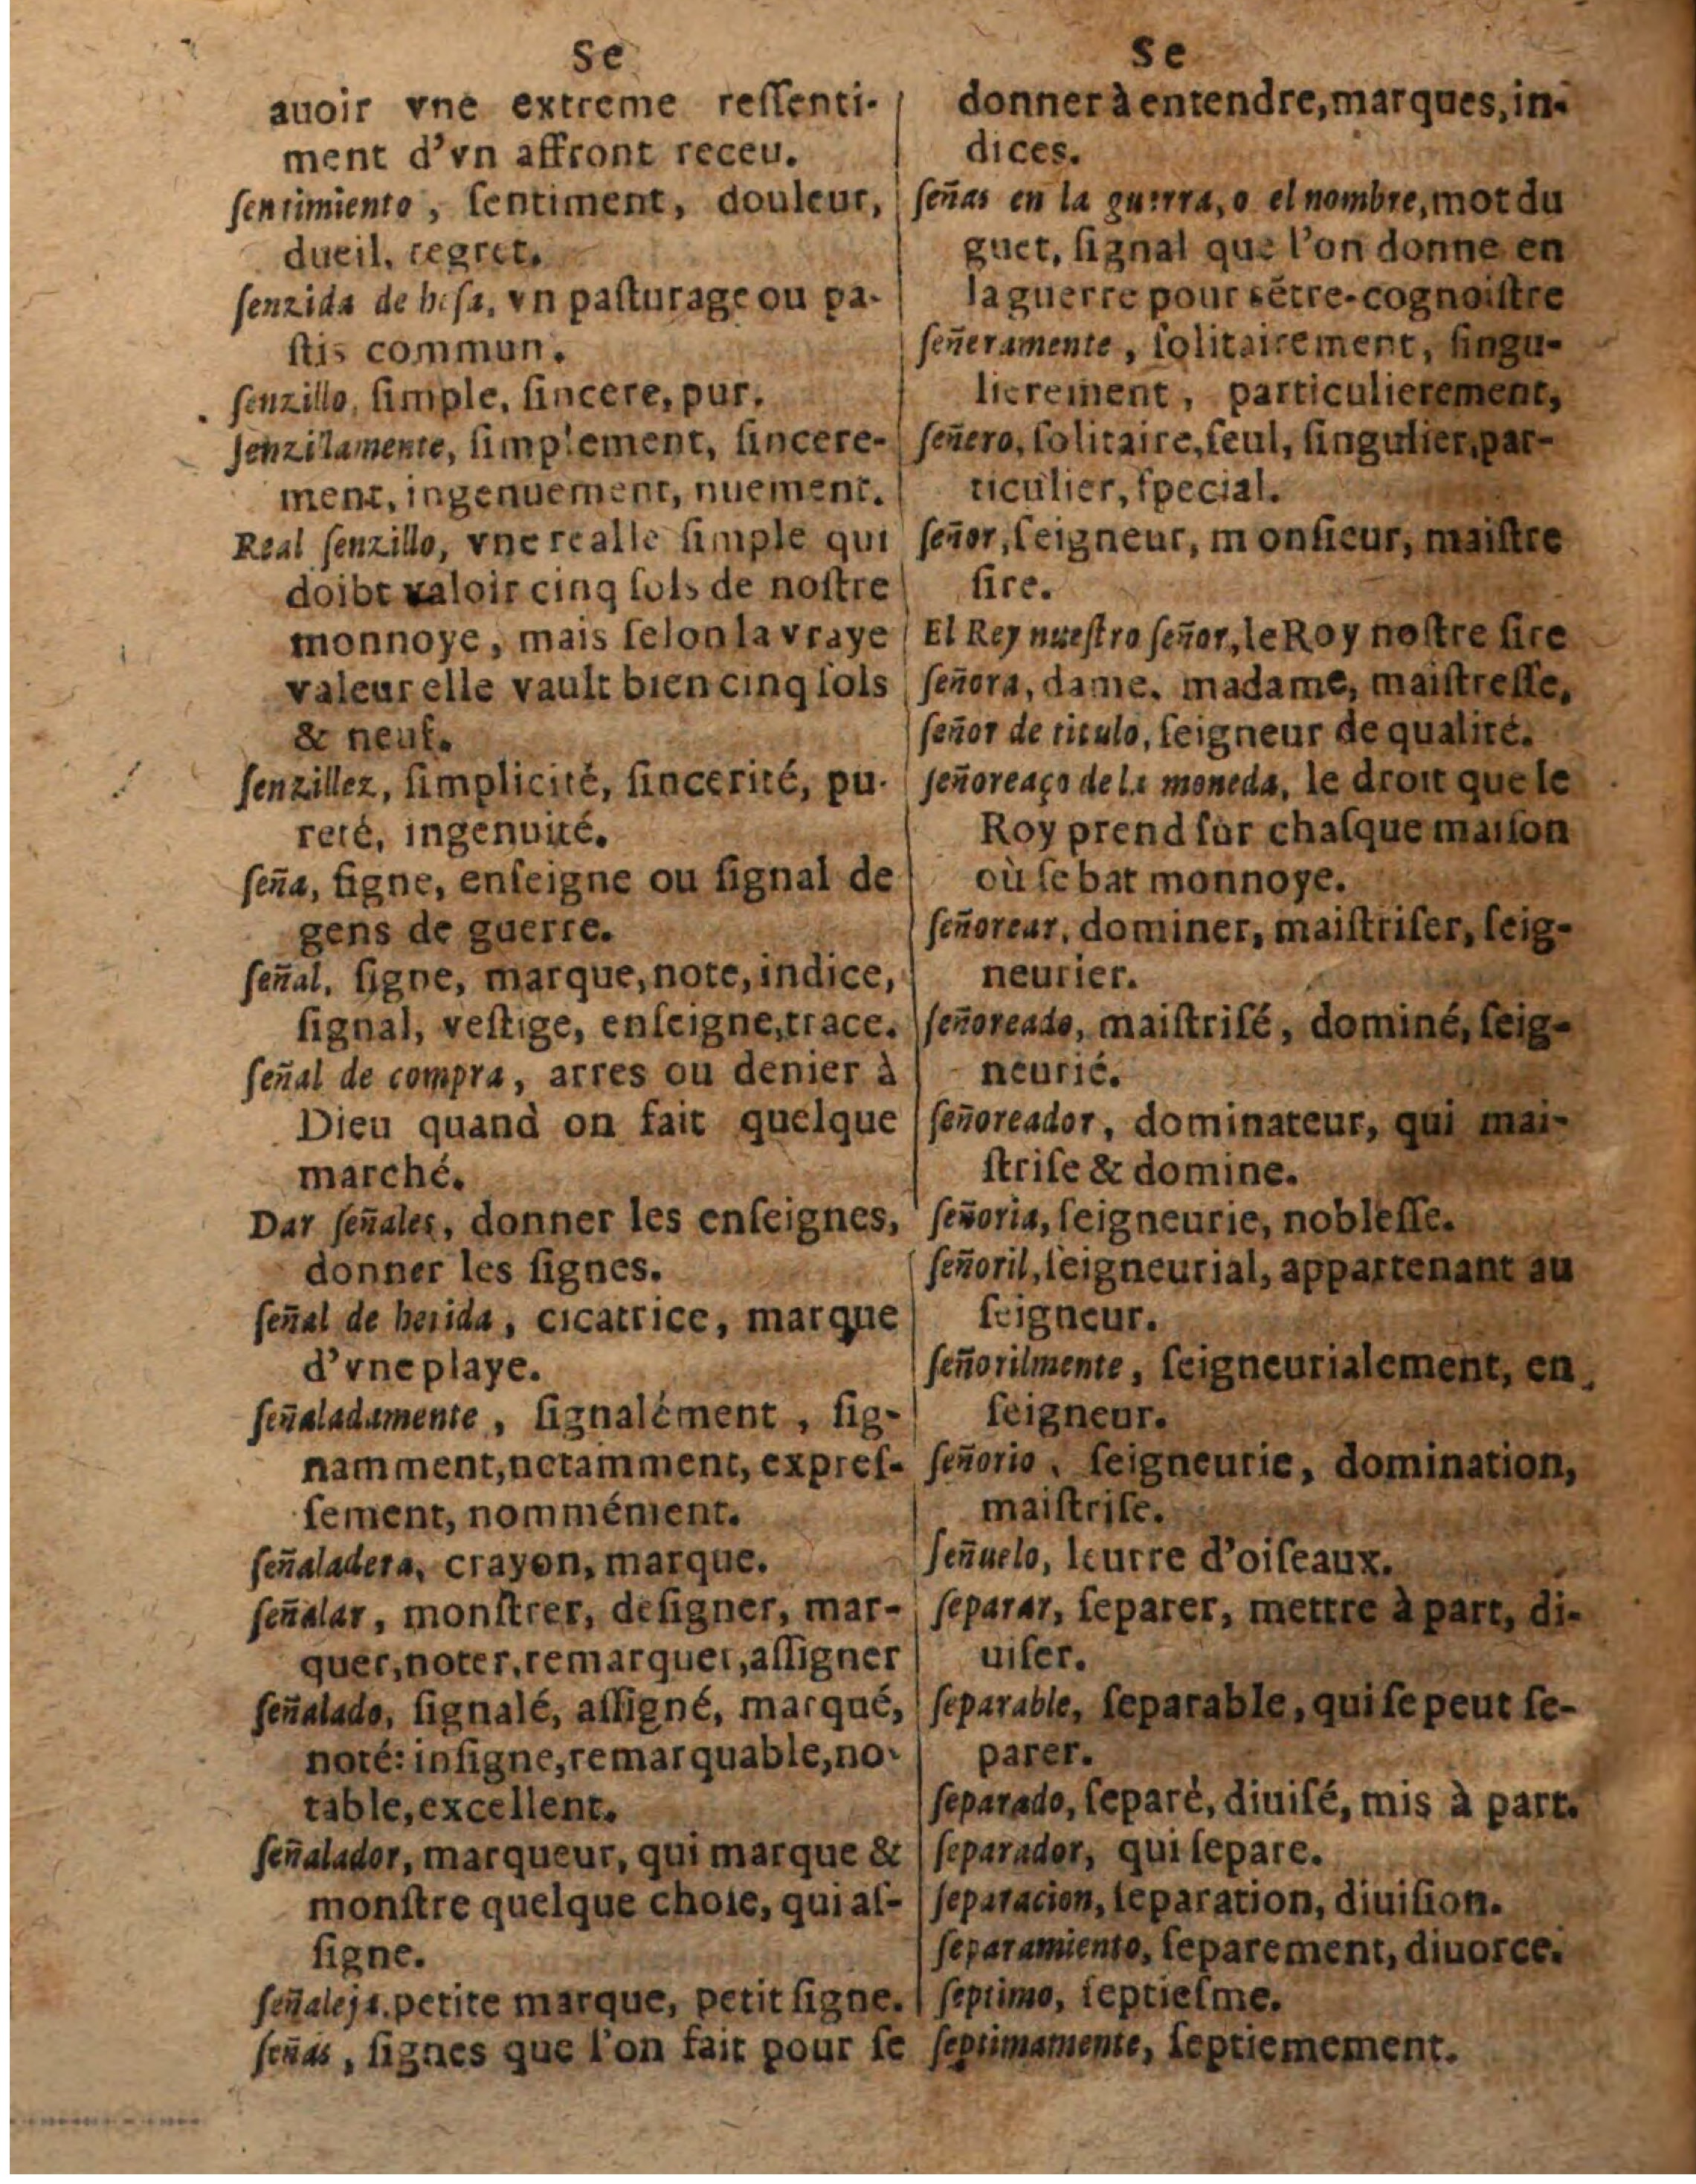 Se
auoir vne extreme reſſenti-
ment d'vn affront receu.
ſentimiento, ſentiment, douleur,
dueil, regret.
ſenzida de heſa, vn paſturage ou pa-
ſtis commun.
ſenzillo, ſimple, ſincere, pur.
ſenzillamente, ſimplement, ſincere-
ment, ingenuement, nuement.
Real ſenzillo, vne realle ſimple qui
doibt valoir cinq ſols de noſtre
monnoye, mais ſelon la vraye
valeur elle vault bien cinq ſols
& neuf.
ſenzillez, ſimplicité, ſincerité, pu-
reté, ingenuité.
ſeña, ſigne, enſeigne ou ſignal de
gens de guerre.
ſeñal, ſigne, marque, note, indice,
ſignal, veſtige, enſeigne, trace.
ſeñal de compra, arres ou denier à
Dieu quand on fait quelque
marché.
Dar ſeñales, donner les enſeignes,
donner les ſignes.
ſeñal de herida, cicatrice, marque
d'vne playe.
ſeñaladamente, ſignalément, ſig-
namment, notamment, expreſ-
ſement, nommément.
ſeñaladera, crayon, marque.
ſeñalar, monſtrer, deſigner, mar-
quer, noter, remarquer, aſſigner
ſeñalado, ſignalé, aſſigné, marqué,
noté: inſigne, remarquable, no-
table, excellent.
ſeñalador, marqueur, qui marque &
monſtre quelque choſe, qui aſ-
ſigne.
ſeñaleja. petite marque, petit ſigne.
ſeñas, ſignes que l'on fait pour ſe
Se
donner à entendre, marques, in-
dices.
ſeñas en la guerra, o el nombre, mot du
guet, ſignal que l'on donne en
la guerre pour s'ẽtre-cognoiſtre
ſeñeramente, ſolitairement, ſingu-
lierement, particulierement,
ſeñero, ſolitaire, ſeul, ſingulier, par-
ticulier, ſpecial.
ſeñor, ſeigneur, monſieur, maiſtre
ſire.
El Rey nueſtro ſeñor, le Roy noſtre ſire
ſeñora, dame, madame, maiſtreſſe,
ſeñor de titulo, ſeigneur de qualité.
ſeñoreaço de la moneda, le droit que le
Roy prend ſur chaſque maiſon
où ſe bat monnoye.
ſeñorear, dominer, maiſtriſer, ſeig-
neurier.
ſeñoreado, maiſtriſé, dominé, ſeig-
neurié.
ſeñoreador, dominateur, qui mai-
ſtriſe & domine.
ſeñoria, ſeigneurie, nobleſſe.
ſeñoril, ſeigneurial, appartenant au
ſeigneur.
ſeñorilmente, ſeigneurialement, en
ſeigneur.
ſeñorio, ſeigneurie, domination,
maiſtriſe.
ſeñuelo, leurre d'oiſeaux.
ſeparar, ſeparer, mettre à part, di-
uiſer.
ſeparable, ſeparable, qui ſe peut ſe-
parer.
ſeparado, ſeparè, diuiſé, mis à part.
ſeparador, qui ſepare.
ſeparacion, ſeparation, diuiſion.
ſeparamiento, ſeparement, diuorce.
ſeptimo, ſeptieſme.
ſeptimamente, ſeptiemement.